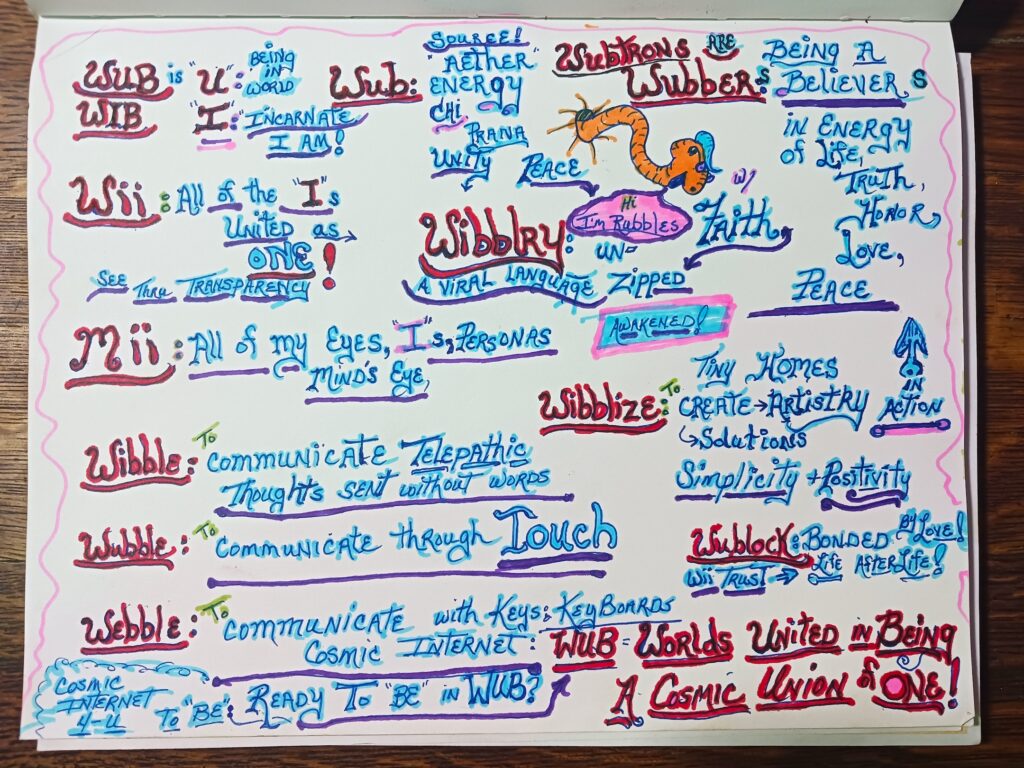 WUB is "U": BEING IN WORLD
WIB "I": "INCARNATE
I AM!
Wub: SOURCE!
"AETHER"
ENERGY
CHi
PRANA
UNiTY PEACE
WubTRONS ARE
WUBBERs: BEING A
BELIEVERS
in ENERGY
of Life,
TRuTH,
HONOR
LOVE,
PEACE
w/
FAiTH
Hi
I'm Rubbles
Wii: All of the "I"s
UNITED as
ONE!
SEE THRU TRANSPARENCY
WibblRY: UN-
A VIRAL LANGUAGE ZIPPED
AWAKENED!
Mii: All of my EYES, "I"s, PERSONAS
MIND'S EYE,
Wibblize: To TiNY HOMES
CREATE → ARTiSTRY
↳ Solutions
IN ACTION
Simplicity + Positivity
Wibble: To COMMUNiCATE Telepathic
Thoughts SENT without WORDS
Wubble: To COMMUNiCATE through Touch
Wublock: BONDED By LOVE!
Wii TRUST → Life AFTER Life!
Webble: To COMMUNiCATE with KEYS: KEYBOARDS
COSMiC INTERNET:
WUB = WORLDS UNiTED in BEiNG
A COSMiC UNiON of ONE!
COSMiC
INTERNET
4-U To "BE": READY To "BE" in WUB?